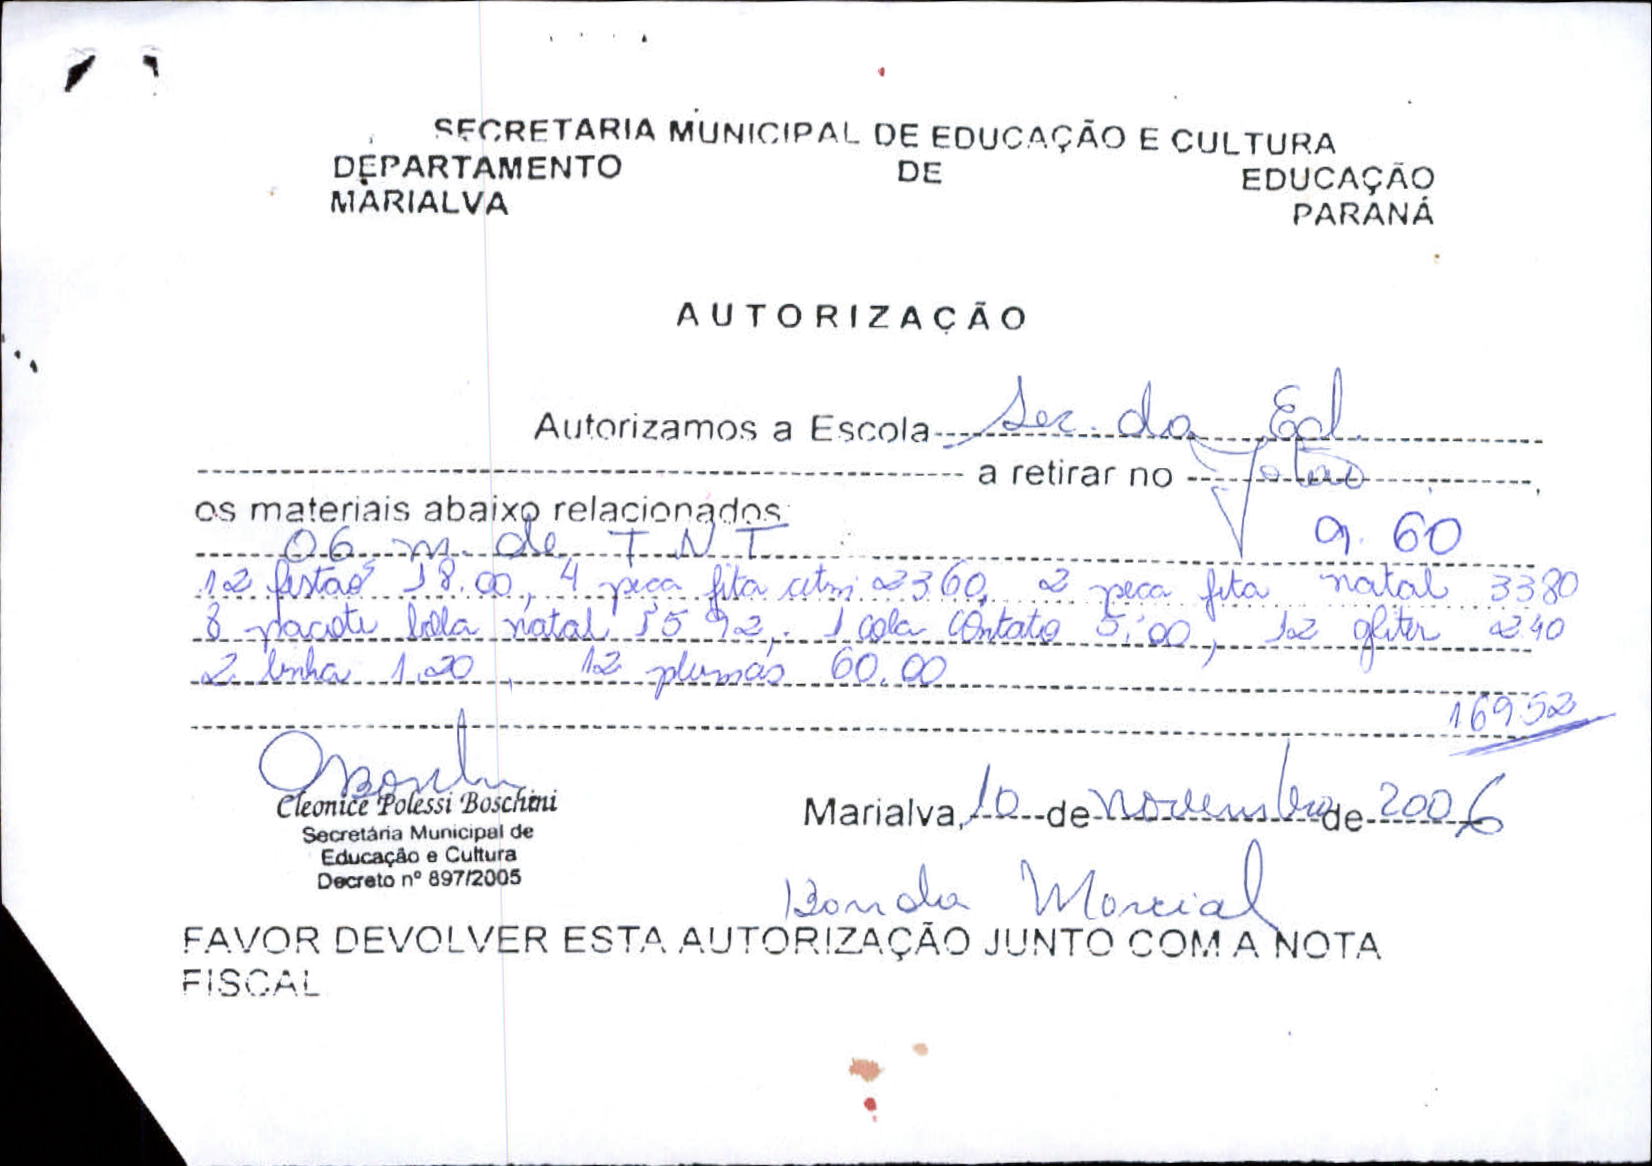 SECRETARIA MUNICIPAL DE EDUCAÇÃO E CULTURA
DEPARTAMENTO DE EDUCAÇÃO
MARIALVA PARANÁ
AUTORIZAÇÃO
Autorizamos a Escola Sec. da Ed.
a retirar no
os materiais abaixo relacionados:
06 m. de TNT 9.60
12 festão 18.00, 4 peca fita 2360, 2 peca fita natal 3380
8 pacote bolla natal 15 92, 1 cola contato 5,00, 12 gliter 240
2 linha 1.20, 12 plumas 60.00
16952
Cleonice Polessi Boschini
Secretária Municipal de
Educação e Cultura
Decreto nº 897/2005
Marialva, 10 de novembro de 2006
Marcial
FAVOR DEVOLVER ESTA AUTORIZAÇÃO JUNTO COM A NOTA
FISCAL